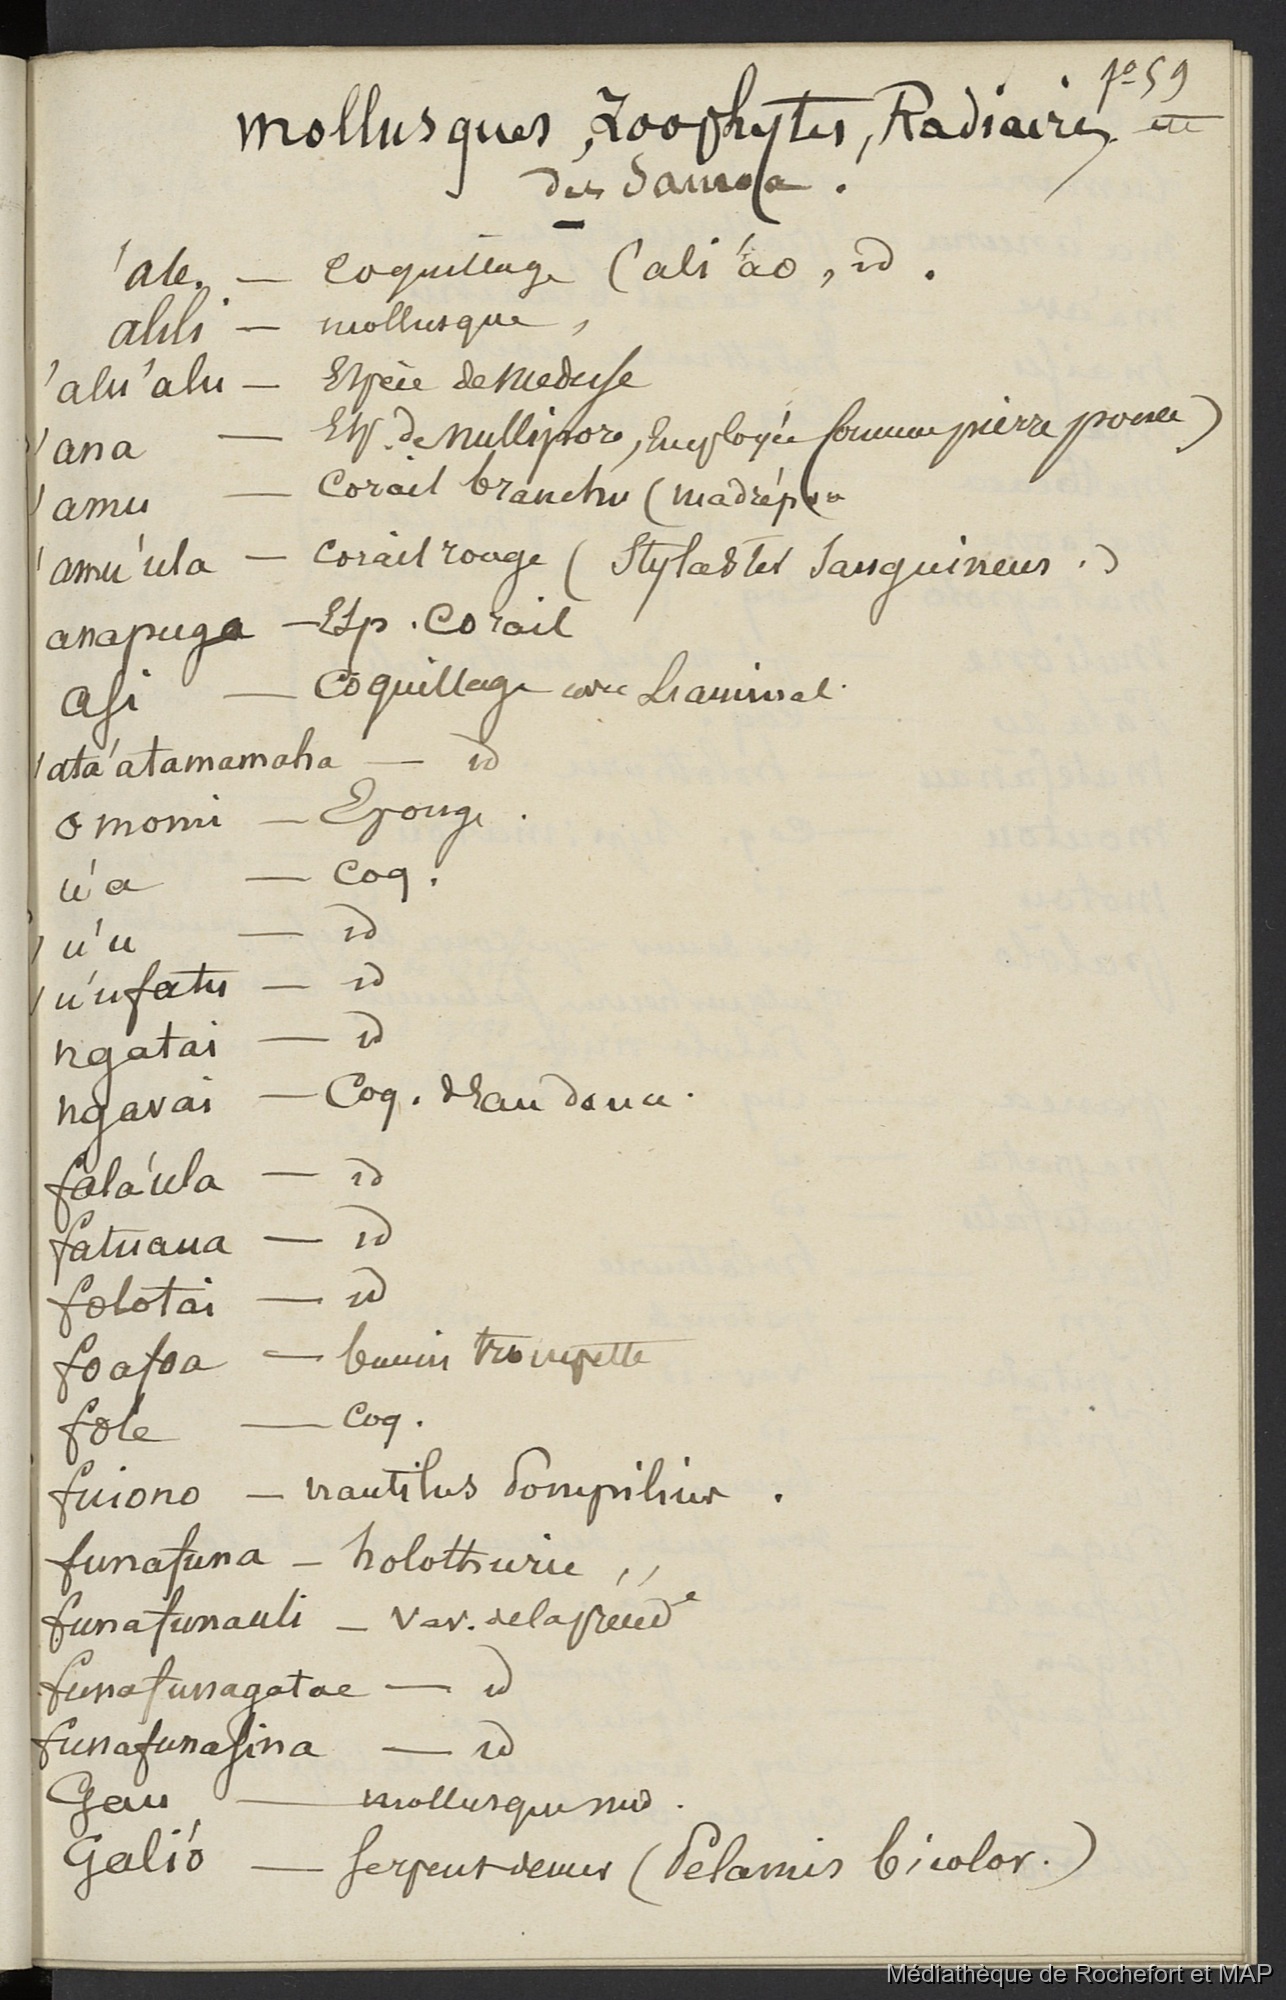 fo 59
mollusques, Zoophytes, Radiaires etc
des Samoa.
'ale. — coquillage ('ali'ao, id.
alili — mollusque,
'alu'alu — Espèce de Meduse
'ana — Esp. de Nullipore, Employée comme pierre ponce)
'amu — Corail branchu (madrépore
'amu'ula — corail rouge (Stylastes Sanguineus.)
anapuga — Esp. Corail
asi — Coquillage avec L'animal.
'ata'atamamaha — id
omomi — Eponge.
u'a — coq.
'u'u — id
'u'ufatu — id
ngatai — id
ngavai — Coq. d'Eau douce.
fala'ula — id
fatuaua — id
folotai — id
foafoa — buccin trompette
fole — coq.
fuiono — nautilus Pompilius.
funafuna — holothurie,,
funafunauli — var. de la préced^e
funafunagatae — id
funafunasina — id
Gau — mollusque nud.
Gali'o — Serpent de mer (Pelamis bicolor.)
Médiathèque de Rochefort et MAP